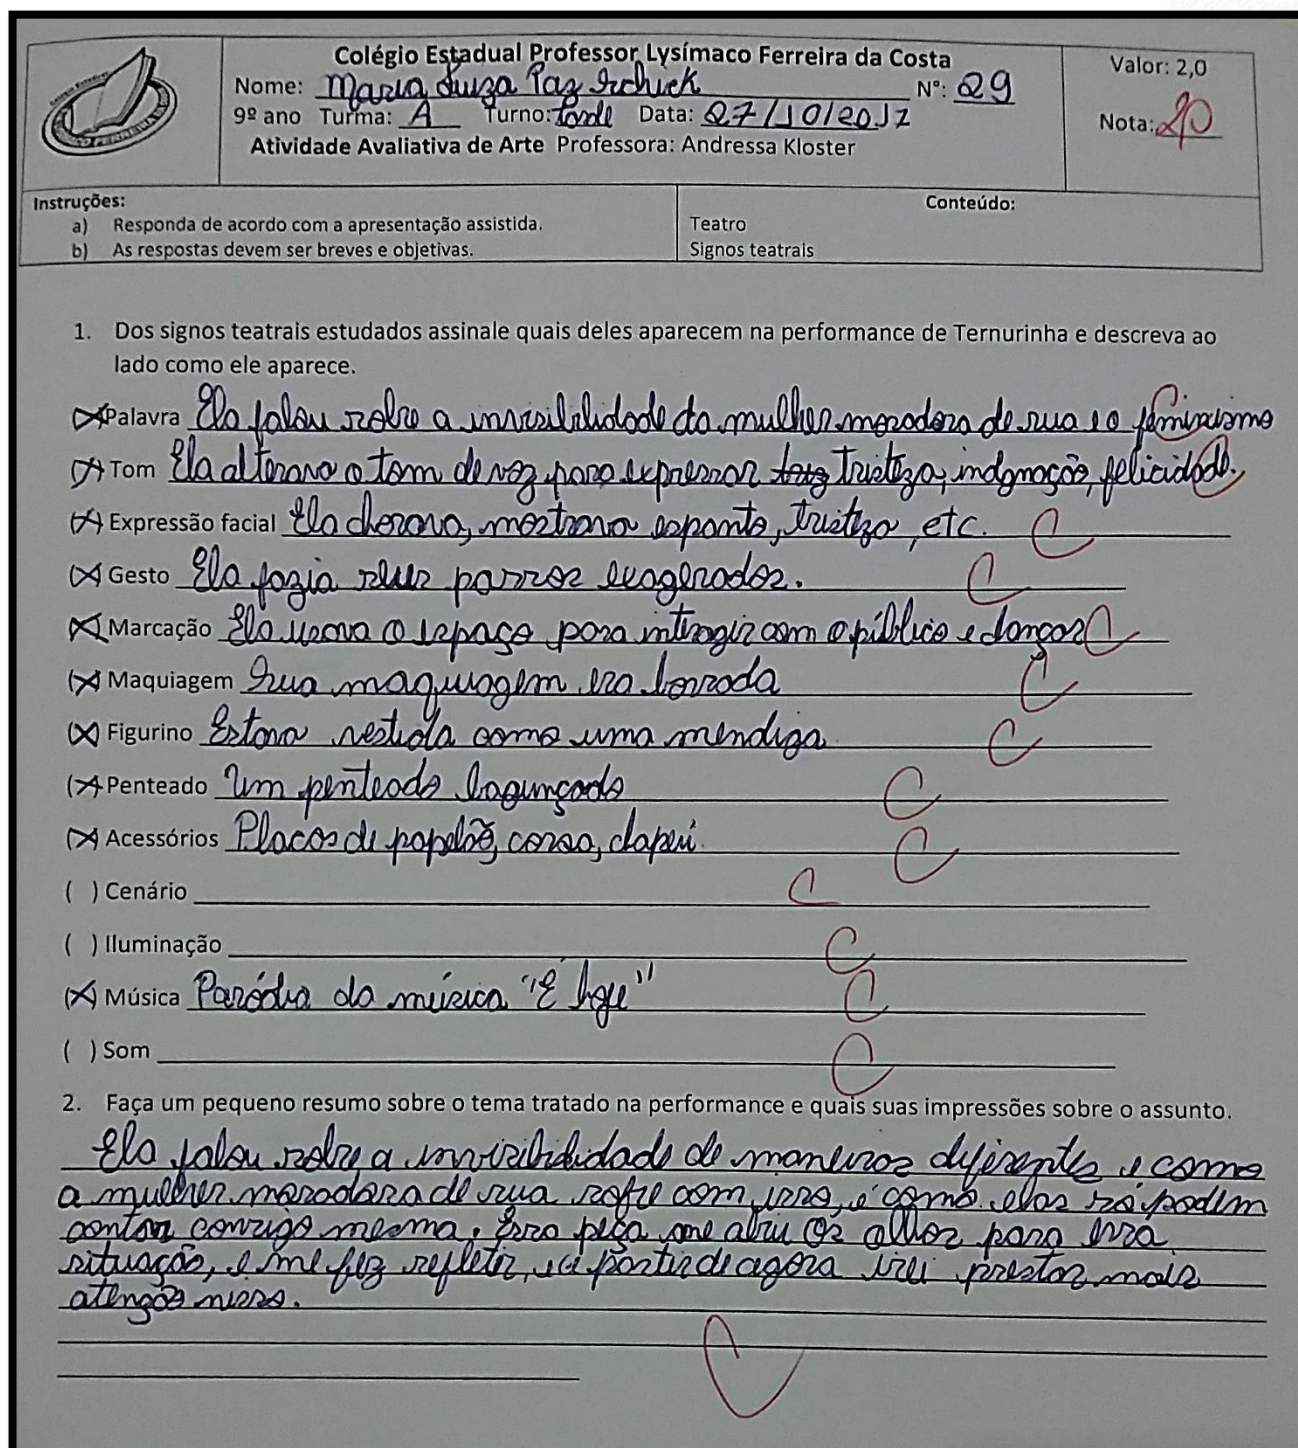 Colégio Estadual Professor Lysímaco Ferreira da Costa
Nome: Maria Luiza Paz Nº: 29
9º ano Turma: A Turno: Tarde Data: 27/10/2017
Atividade Avaliativa de Arte Professora: Andressa Kloster
Valor: 2,0
Nota: 2,0
Instruções:
a) Responda de acordo com a apresentação assistida.
b) As respostas devem ser breves e objetivas.
Conteúdo:
Teatro
Signos teatrais
1. Dos signos teatrais estudados assinale quais deles aparecem na performance de Ternurinha e descreva ao
lado como ele aparece.
(X) Palavra Ela falou sobre a invisibilidade da mulher moradora de rua e o feminismo C
(X) Tom Ela alterava o tom de voz para expressar tristeza, indignação, felicidade. C
(X) Expressão facial Ela chorava, mostrava espanto, tristeza, etc. C
(X) Gesto Ela fazia seus passos exagerados. C
(X) Marcação Ela usava o espaço para interagir com o público e dançar C
(X) Maquiagem Sua maquiagem era borrada C
(X) Figurino Estava vestida como uma mendiga C
(X) Penteado Um penteado bagunçado C
(X) Acessórios Placas de papelão, coroa, chapéu. C
( ) Cenário C
( ) Iluminação C
(X) Música Paródia da música "É hoje" C
( ) Som C
2. Faça um pequeno resumo sobre o tema tratado na performance e quais suas impressões sobre o assunto.
Ela falou sobre a invisibilidade de maneiras diferentes e como
a mulher moradora de rua sofre com isso, e como elas só podem
contar consigo mesma. Essa peça me abriu os olhos para essa
situação, e me fez refletir, e a partir de agora irei prestar mais
atenção nisso.
C